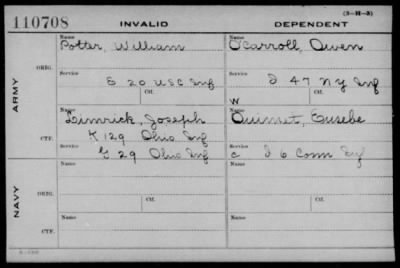 (3-H-5)
110708 INVALID DEPENDENT
Name Name
Potter, William O'Carroll, Owen
ORIG.
Service Service
E 20 USC Inf I 47 NY Inf
Ctf. Ctf.
ARMY
Name W Name
Limrick, Joseph Ouimet, Eusebe
CTF. K 129 Ohio Inf
Service
G 29 Ohio Inf C I 6 Conn Inf
Name Name
ORIG.
Service Ctf. Service Ctf.
NAVY
Name Name
CTF.
Service Service